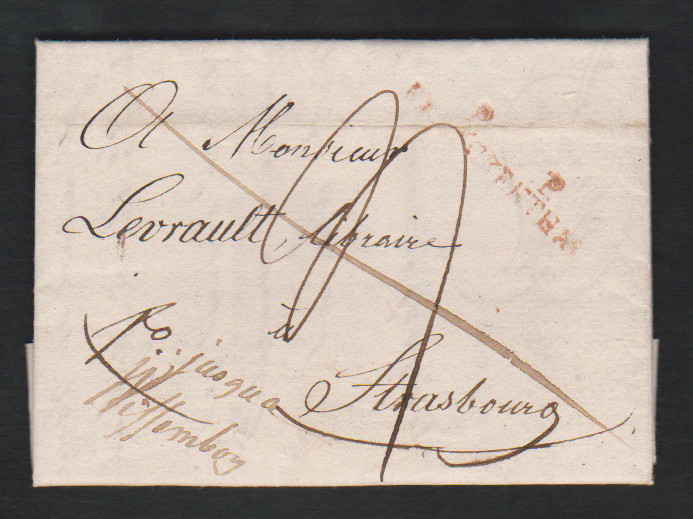 A Monsieur
Levrault, libraire
à
Strasbourg
jusqua
Wissembourg
P P